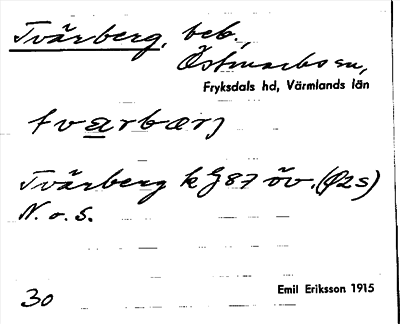 Tvärberg, beb.,
Östmarks sn,
Fryksdals hd, Värmlands län
tvarbærj
Tvärberg k G 87 öv. (Ø2s)
N. o. S.
30
Emil Eriksson 1915